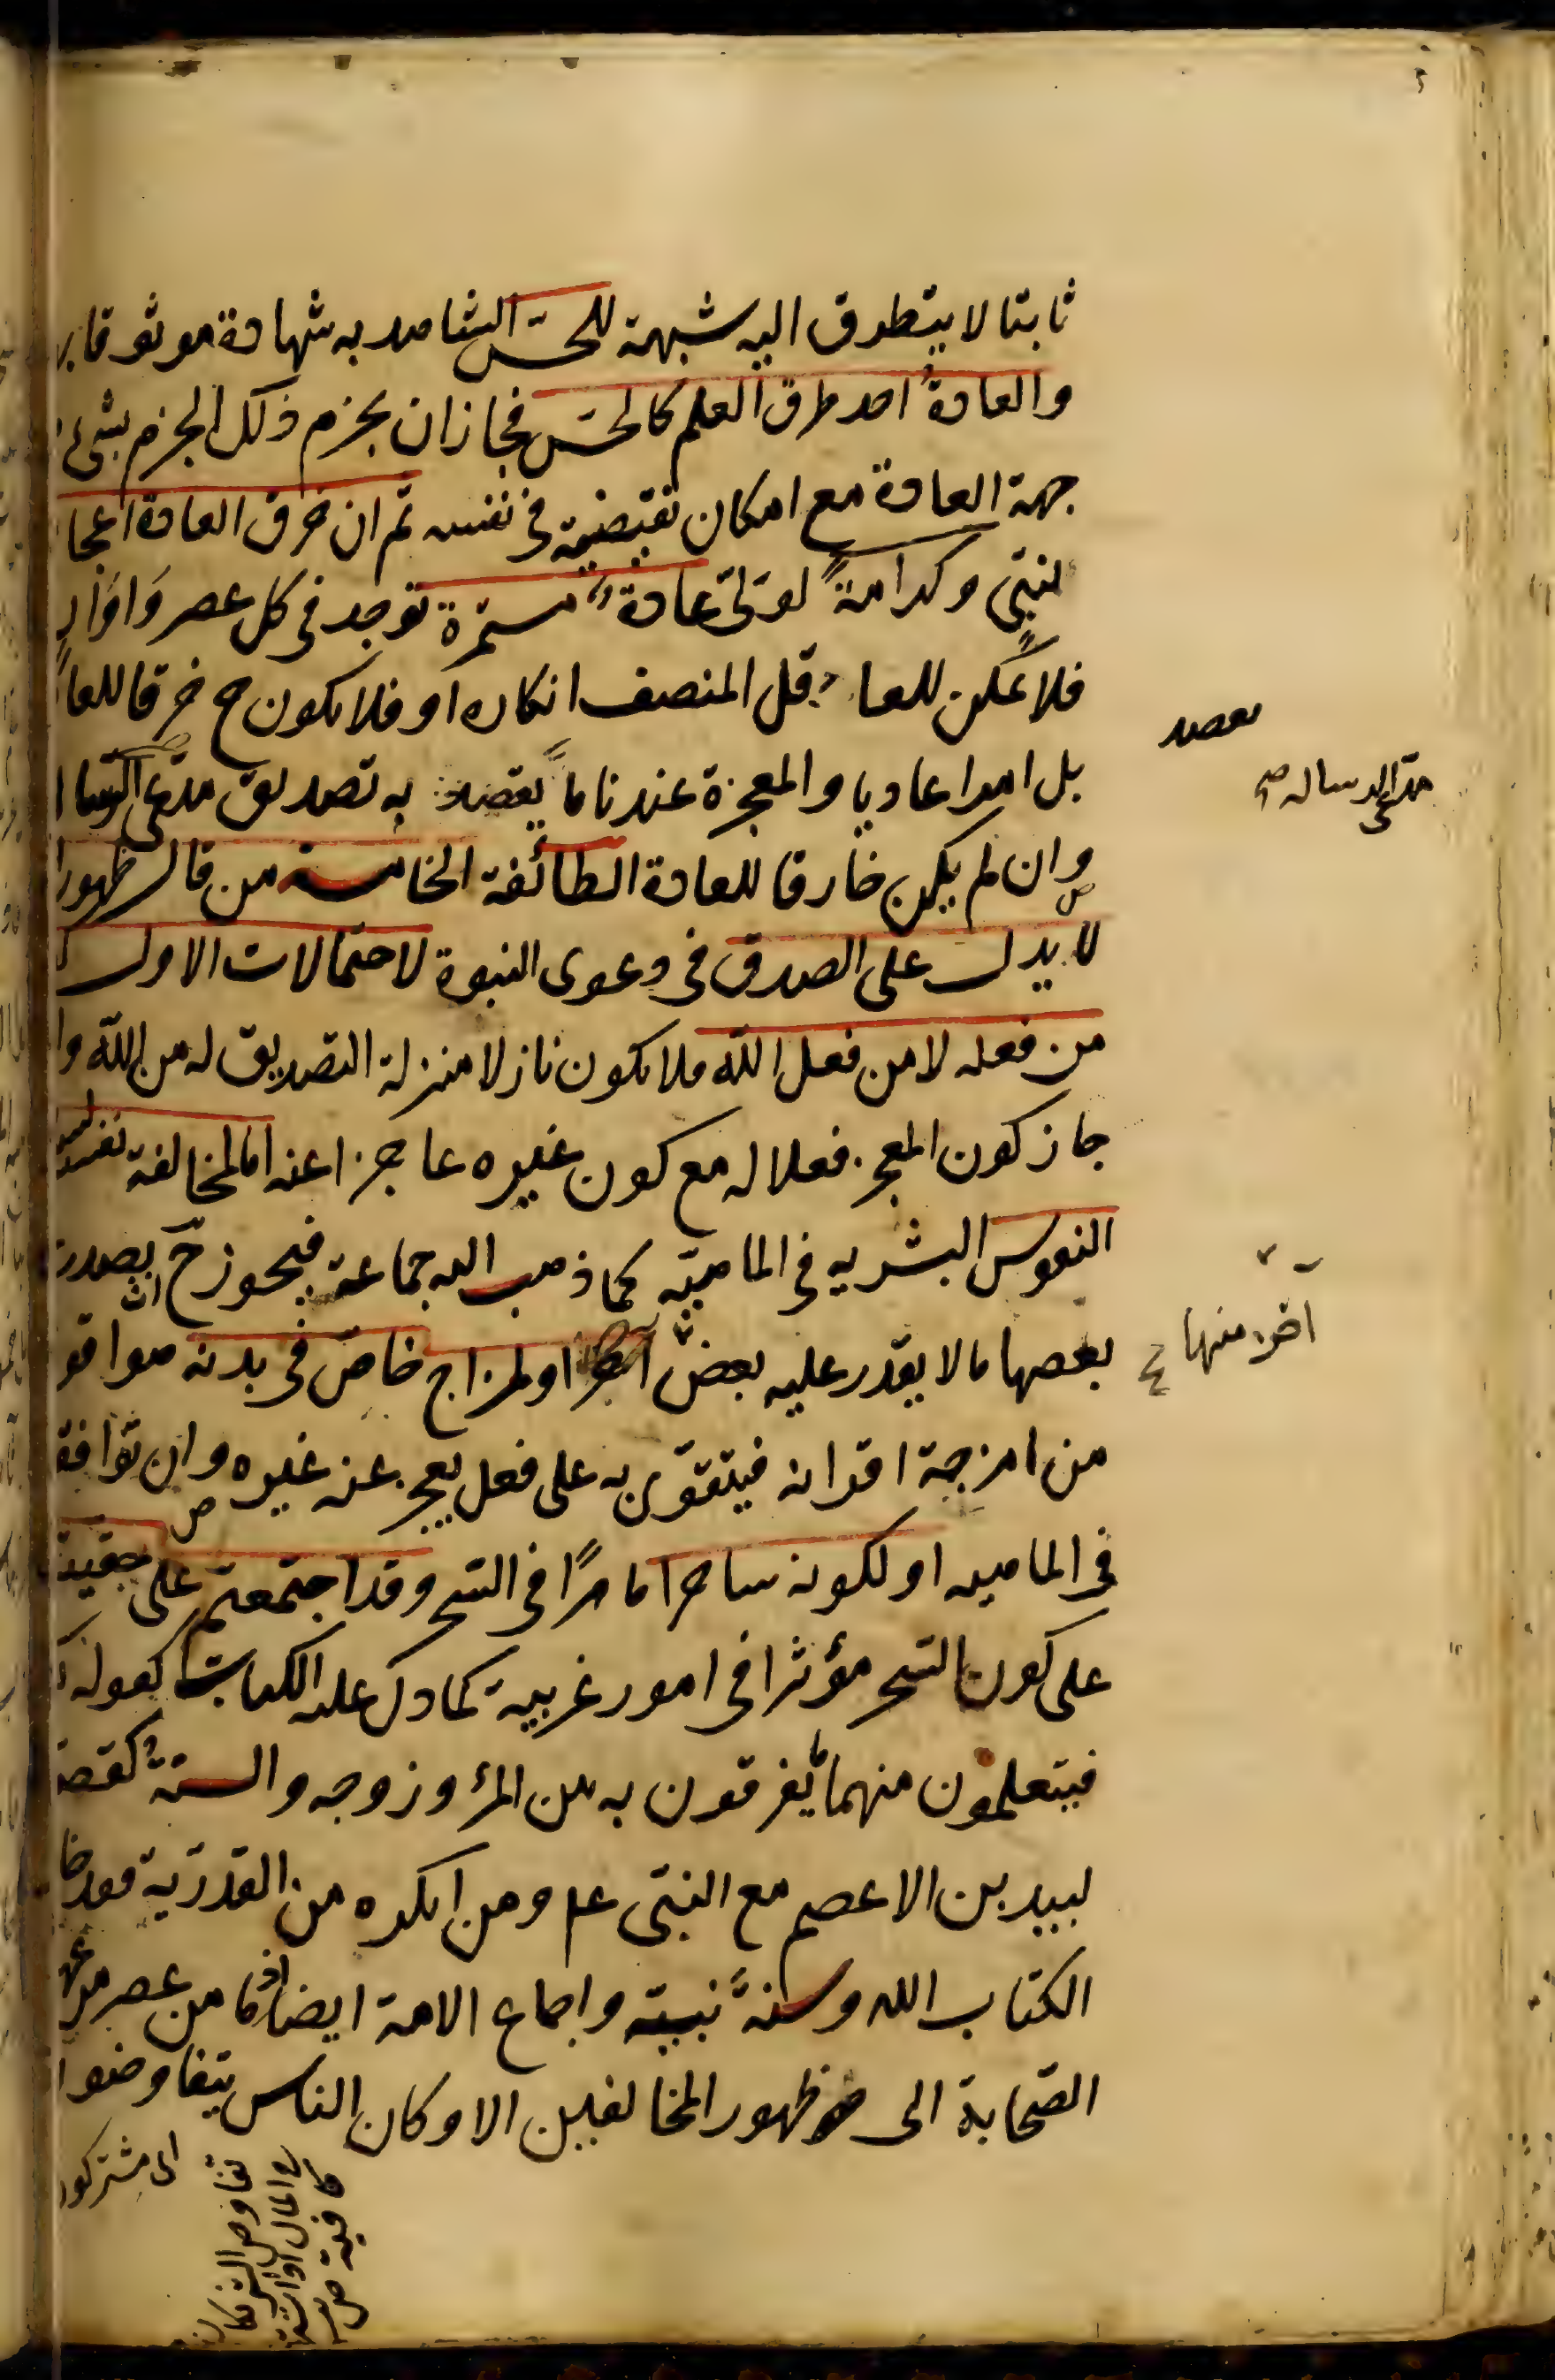 ثابتا لا يتطرق اليه شبهة للحسّ الشاهد به شهادة موثوقا بـ
والعادة احد طرق العلم كالحسّ فجاز ان يجزم ذلك الجزم بشئ
جهة العادة مع امكان نقيضه فى نفسه ثم ان خرق العادة اعجا
لنبىّ وكرامةً لولىّ عادةٌ مستمرة توجد فى كل عصر واوا
فلا يمكن للعا قل المنصف انكاره او فلا يكون ح خرقا للعا
بل امرا عاديا والمعجزة عندنا ما يقصد به تصديق مدّعى الرسا
وان لم يكن خارقا للعادة الطائفة الخامسة من قال ظهور
لا يدل على الصدق فى دعوى النبوة لاحتمالات الاول
من فعله لا من فعل الله فلا يكون نازلا منزلة التصديق له من الله وا
جاز كون المعجز فعلا له مع كون غيره عاجزا عنه اما لمخالفة نفسه
النفوس البشريه فى الماهيّة كما ذهب اليه جماعة فيجوز ح ان يصدر
بعضها ما لا يقدر عليه بعض آخر او لمزاج خاص فى بدنه هو اقو
من امزجة اقرانه فيتقوّى به على فعل يعجز عنه غيره وان توافقـ
فى الماهيه او لكونه ساحرا ماهرًا فى السّحر وقد اجتمعتم على حقيته
على كون السّحر مؤثرا فى امور غريبة كما دل عليه الكتاب كقوله
فيتعلمون منهما ما يفرقون به بين المرء وزوجه والسنةُ كقصـ
لبيد بن الاعصم مع النبىّ عم ومن انكره من القدريّة فقد خا
الكتاب الله وسنةً نبيّه واجماع الامة ايضا اذ ما من عصر من عهد
الصّحابة الى ظهور المخالفين الا وكان الناس يتفاوضوا
يقصد
مدّعى الرساله صح
اخر منها
اى مشتركو
تفاوض الشريكان
فى المال
كافية